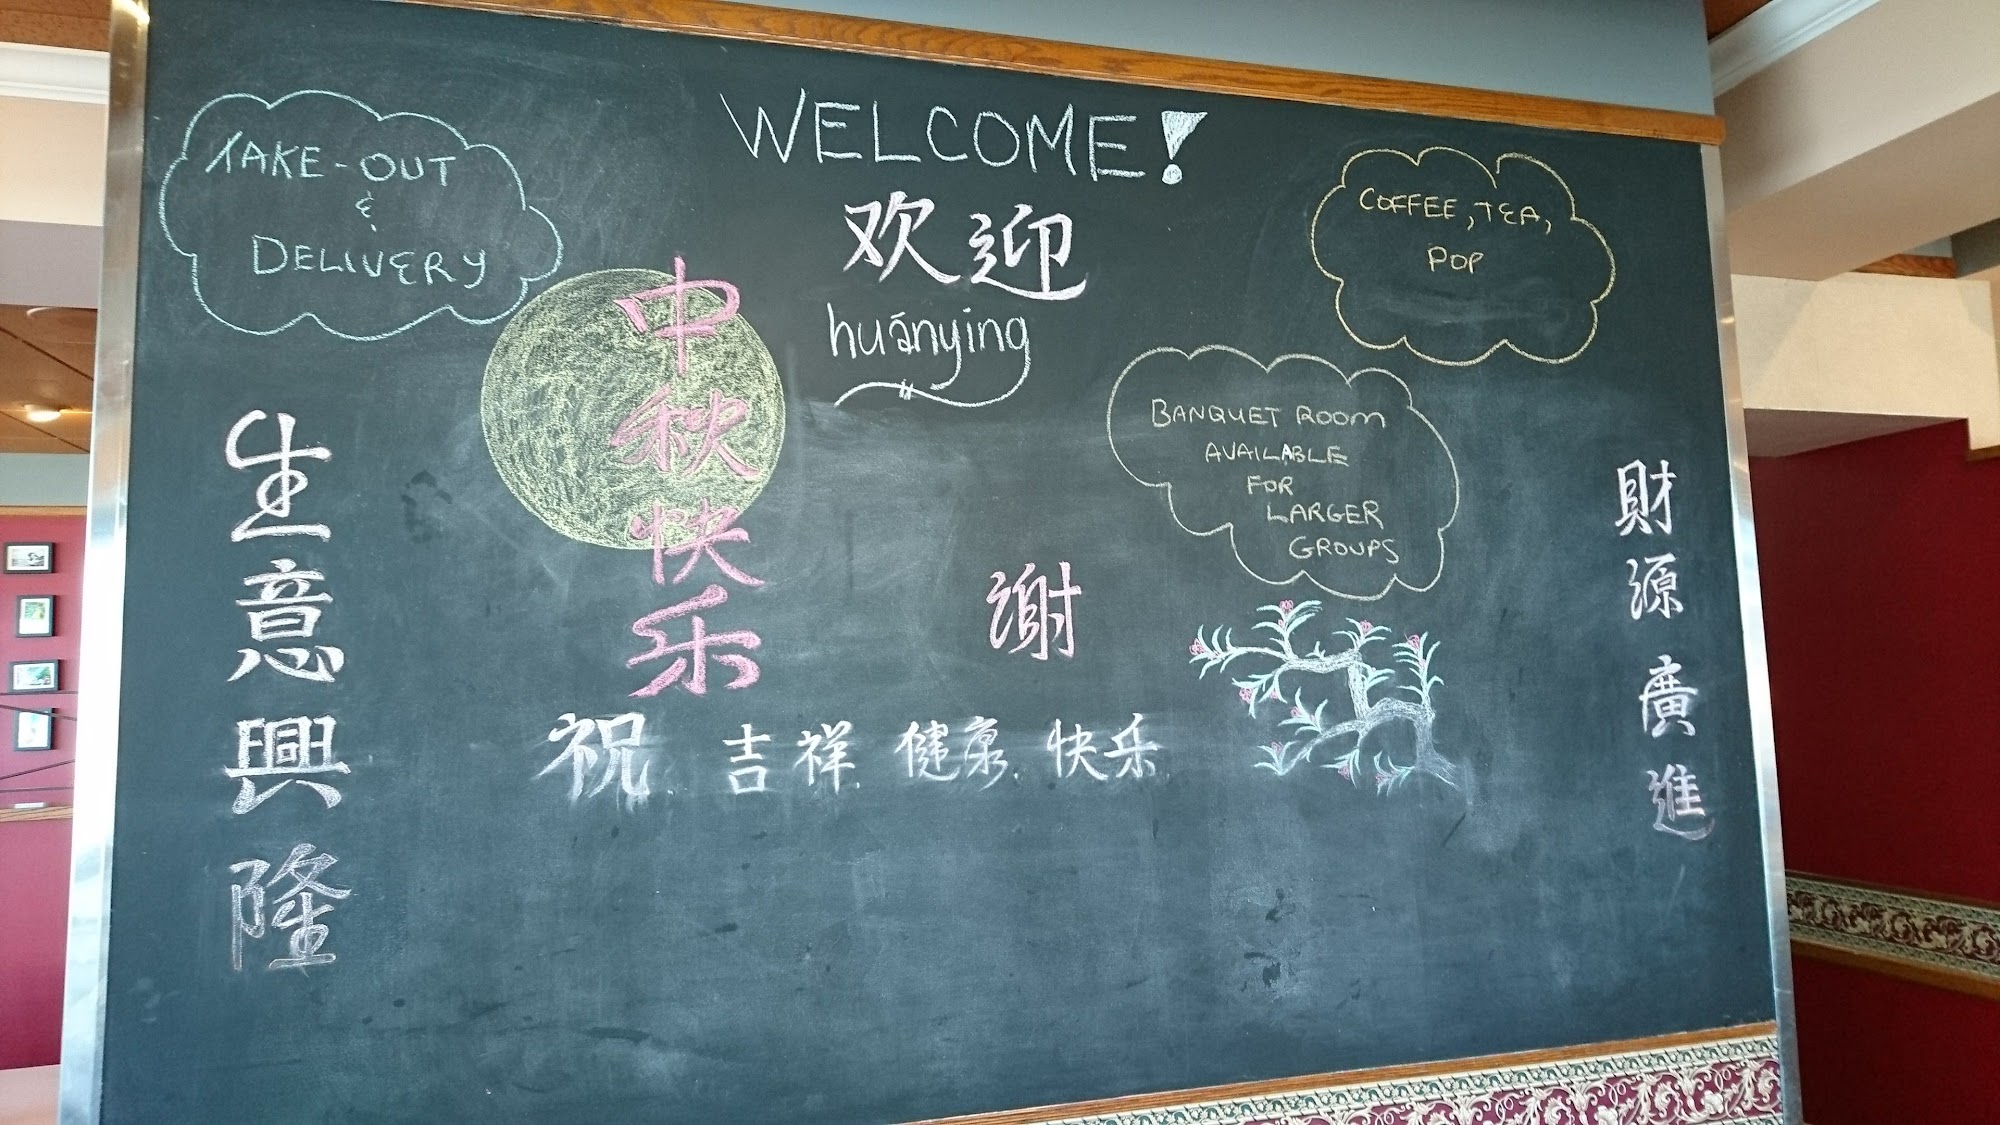 WELCOME!
TAKE-OUT
&
DELIVERY
欢迎
huānying
COFFEE, TEA,
POP
中秋快乐
BANQUET ROOM
AVAILABLE
FOR
LARGER
GROUPS
生意興隆
謝
財源廣進
祝 吉祥 健康 快乐